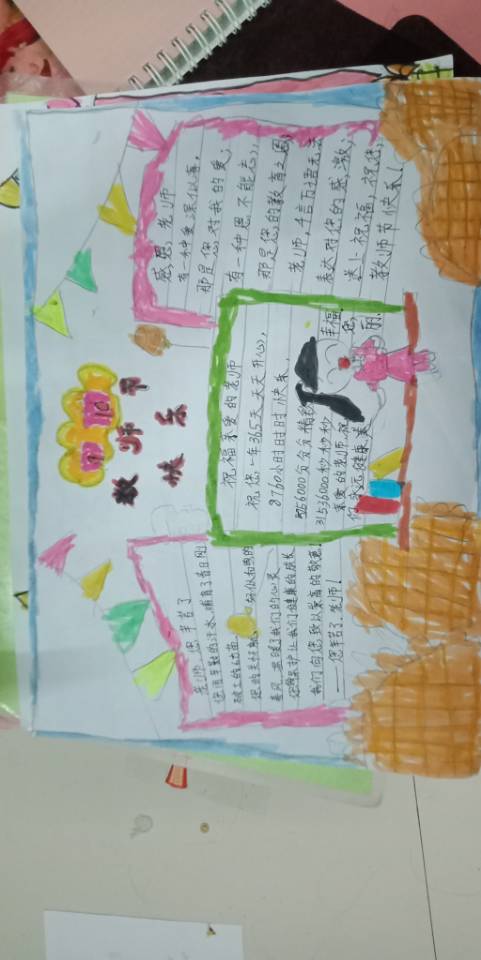 9 10
教师节
快乐
老师 您辛苦了
您用辛勤的汗水,哺育了春日刚
破土的幼苗.
您的关怀就 好似和煦的
春风,温暖了我们的心灵
您的呵护让我们健康的成长
我们向您致以崇高的敬意!
——您辛苦了,老师!
祝福亲爱的老师
祝您:一年365天天天开心,
8760小时时时快乐,
5256000分分分精彩
31536000秒秒秒幸福.
亲爱的老师,祝您
们永远健康美丽.
感恩老师
有一种爱深似海,
那是您对我的爱;
有一种恩不能忘,
那是您的教育之恩;
老师,千言万语无法
表达对您的感激;
送上祝福,祝您,
教师节快乐!